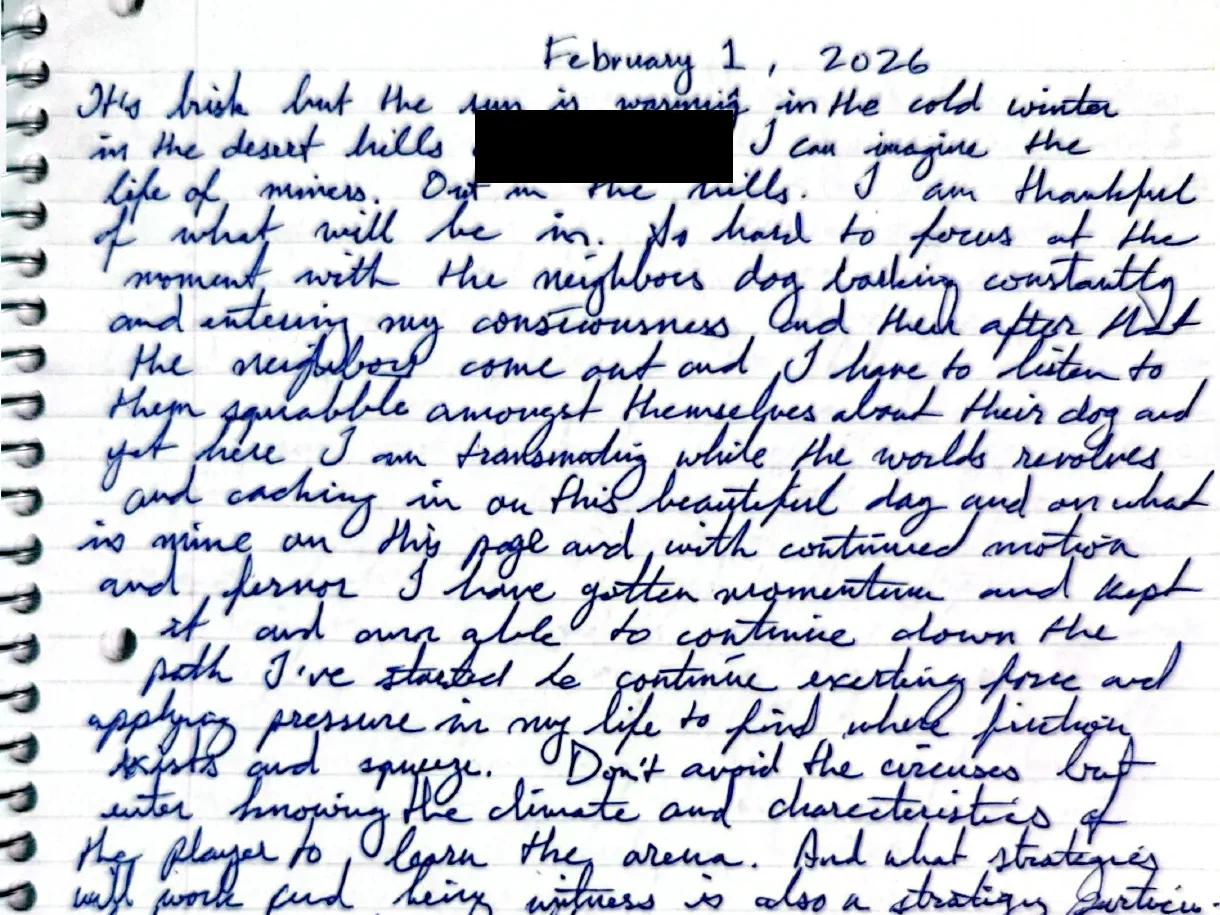 February 1, 2026
It's brisk but the sun is warming in the cold winter
in the desert hills I can imagine the
life of miners. Out in the hills. I am thankful
of what will be in. So hard to focus at the
moment with the neighbors dog barking constantly
and entering my consciousness and then after that
the neighbors come out and I have to listen to
them squabble amongst themselves about their dog and
yet here I am while the worlds revolves
and caching in on this beautiful day and on what
is mine on this page and with continued motion
and fervor I have gotten momentum and kept
it and am able to continue down the
path I've started to continue exerting force and
applying pressure in my life to find where friction
exists and squeeze. Don't avoid the circuses but
enter knowing the climate and characteristics of
the player to learn the arena. And what strategies
will work and being witness is also a strategy